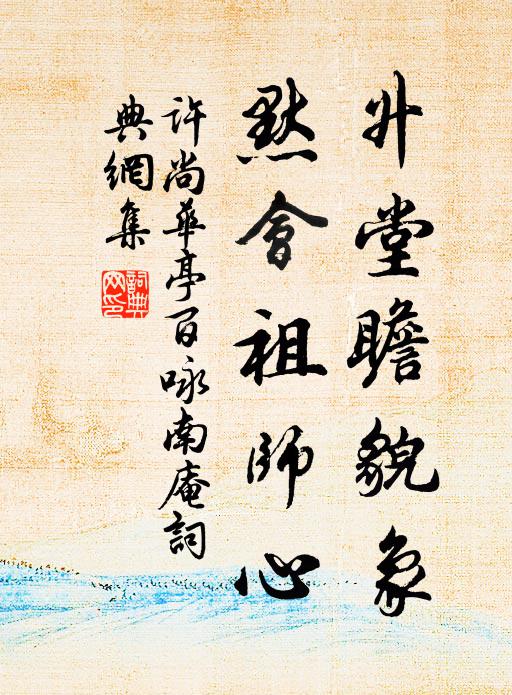 升堂瞻貌象
默會祖師心
許尚華亭百咏南庵詞
典網集
詞典網印